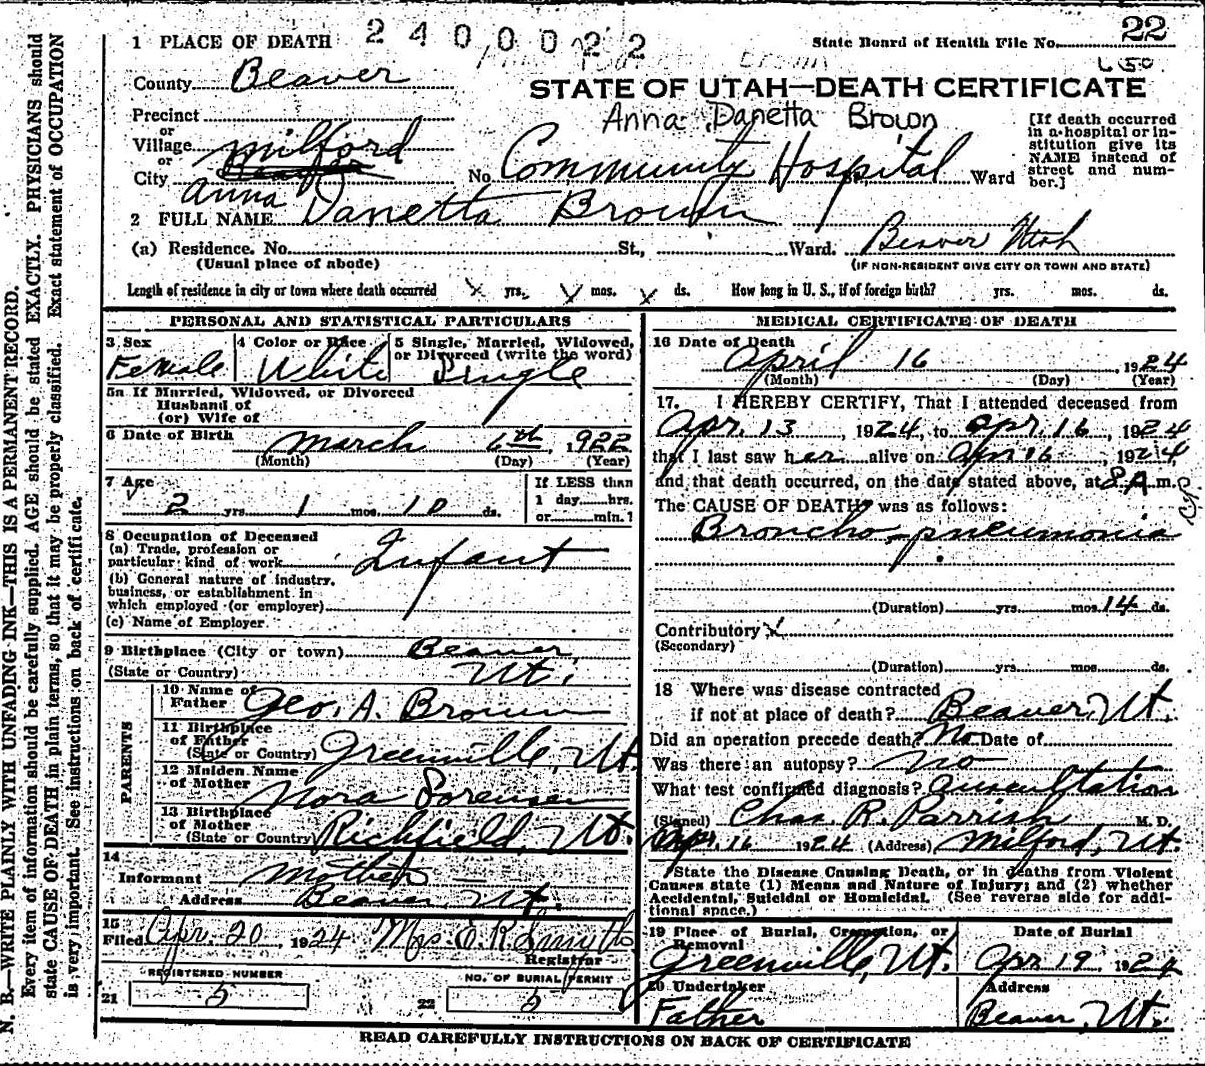 22
2400022
1 PLACE OF DEATH
State Board of Health File No.
County Beaver
STATE OF UTAH—DEATH CERTIFICATE
Anna Danetta Brown
Precinct
or
Village Milford
or
City
No. Community Hospital Ward
[If death occurred in a hospital or institution give its NAME instead of street and number.]
Anna
2 FULL NAME Danetta Brown
(a) Residence. No. St., Ward. Beaver Utah
(Usual place of abode)
(IF NON-RESIDENT GIVE CITY OR TOWN AND STATE)
Length of residence in city or town where death occurred X yrs. X mos. X ds. How long in U. S., if of foreign birth? yrs. mos. ds.
PERSONAL AND STATISTICAL PARTICULARS
3 Sex
Female
4 Color or Race
White
5 Single, Married, Widowed, or Divorced (write the word)
Single
5a If Married, Widowed, or Divorced
Husband of
(or) Wife of
6 Date of Birth March 6th, 1922
(Month) (Day) (Year)
7 Age
2 yrs. 1 mos. 10 ds.
If LESS than
1 day hrs.
or min.?
8 Occupation of Deceased
(a) Trade, profession or
particular kind of work Infant
(b) General nature of industry,
business, or establishment in
which employed (or employer)
(c) Name of Employer
9 Birthplace (City or town) Beaver
(State or Country) Ut.
PARENTS
10 Name of
Father Geo. A. Brown
11 Birthplace
of Father
(State or Country) Greenville, Ut.
12 Maiden Name
of Mother Nora Sorensen
13 Birthplace
of Mother
(State or Country) Richfield, Ut.
14
Informant Mother
Address Beaver Ut.
15
Filed Apr. 20 1924 Mrs. E. R. Smyth
Registrar
REGISTERED NUMBER
21 5
NO. OF BURIAL PERMIT
22 5
MEDICAL CERTIFICATE OF DEATH
16 Date of Death
April 16, 1924
(Month) (Day) (Year)
17. I HEREBY CERTIFY, That I attended deceased from
Apr. 13, 1924, to Apr. 16, 1924
that I last saw her alive on Apr. 16, 1924,
and that death occurred, on the date stated above, at 8 A.m.
The CAUSE OF DEATH was as follows:
Broncho-pneumonia
(Duration) yrs. mos. 14 ds.
Contributory X
(Secondary)
(Duration) yrs. mos. ds.
18 Where was disease contracted
if not at place of death? Beaver, Ut.
Did an operation precede death? No Date of
Was there an autopsy? No
What test confirmed diagnosis? Auscultation
(Signed) Chas. R. Parrish M. D.
Apr. 16 1924 (Address) Milford, Ut.
State the Disease Causing Death, or in deaths from Violent
Causes state (1) Means and Nature of Injury; and (2) whether
Accidental, Suicidal or Homicidal. (See reverse side for addi-
tional space.)
19 Place of Burial, Cremation, or
Removal
Greenville, Ut.
Date of Burial
Apr 19 1924
20 Undertaker
Father
Address
Beaver, Ut.
READ CAREFULLY INSTRUCTIONS ON BACK OF CERTIFICATE
N. B.—WRITE PLAINLY WITH UNFADING INK—THIS IS A PERMANENT RECORD.
Every item of information should be carefully supplied. AGE should be stated EXACTLY. PHYSICIANS should
state CAUSE OF DEATH in plain terms, so that it may be properly classified. Exact statement of OCCUPATION
is very important. See instructions on back of certificate.